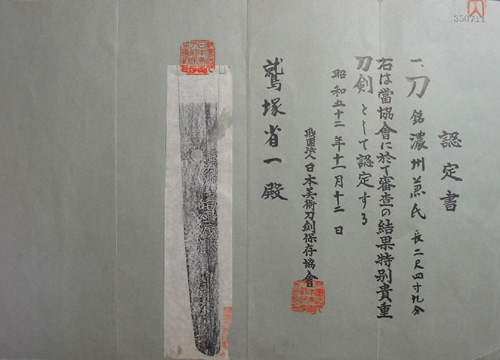 認定書
一、刀 銘 濃州兼氏 長二尺四寸九分
右は當協會に於て審査の結果特別貴重
刀劍として認定する
昭和五十二年十一月十二日
財團法人日本美術刀劍保存協會
鷲塚省一殿
350711